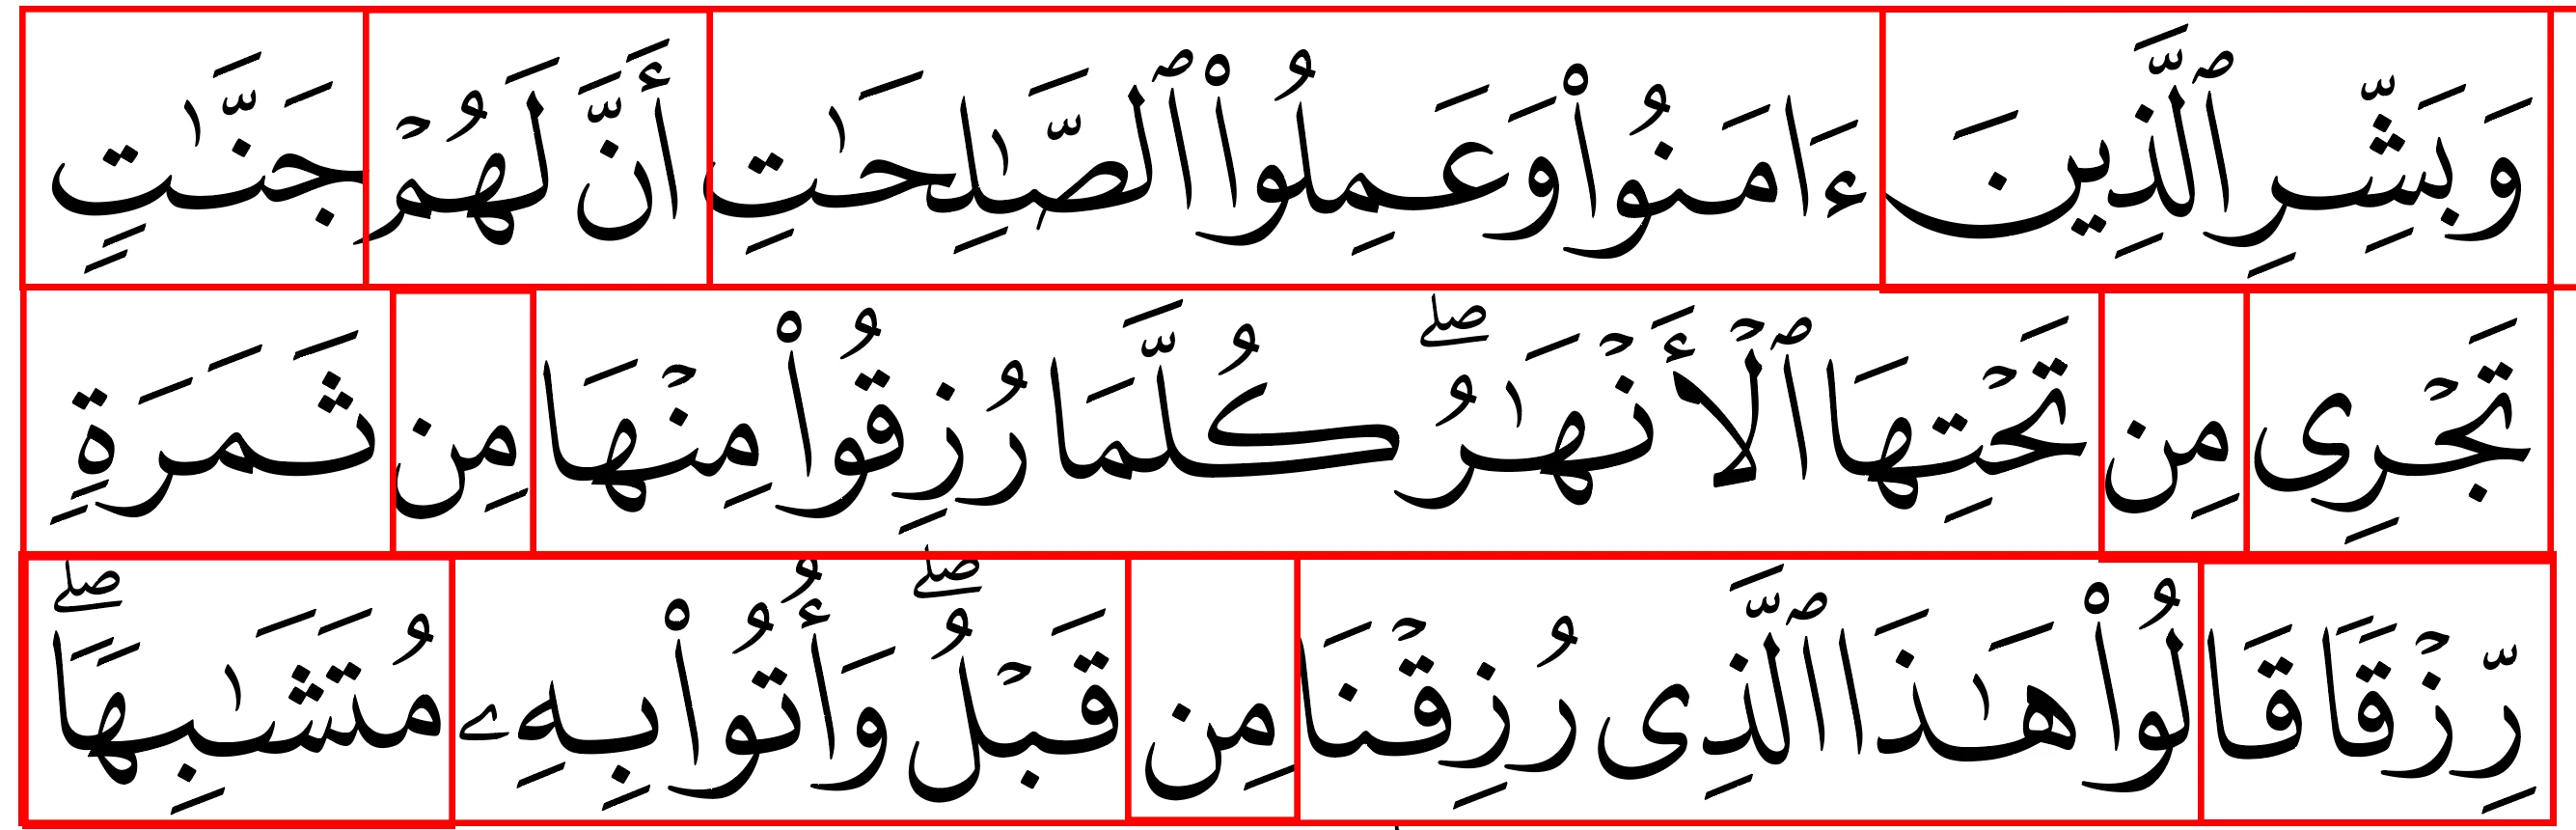 وَبَشِّرِ ٱلَّذِينَ ءَامَنُوا۟ وَعَمِلُوا۟ ٱلصَّـٰلِحَـٰتِ أَنَّ لَهُمۡ جَنَّـٰتٍ
تَجۡرِى مِن تَحۡتِهَا ٱلۡأَنۡهَـٰرُۖ كُلَّمَا رُزِقُوا۟ مِنۡهَا مِن ثَمَرَةٍ
رِّزۡقًا قَالُوا۟ هَـٰذَا ٱلَّذِى رُزِقۡنَا مِن قَبۡلُۖ وَأُتُوا۟ بِهِۦ مُتَشَـٰبِهًاۖ